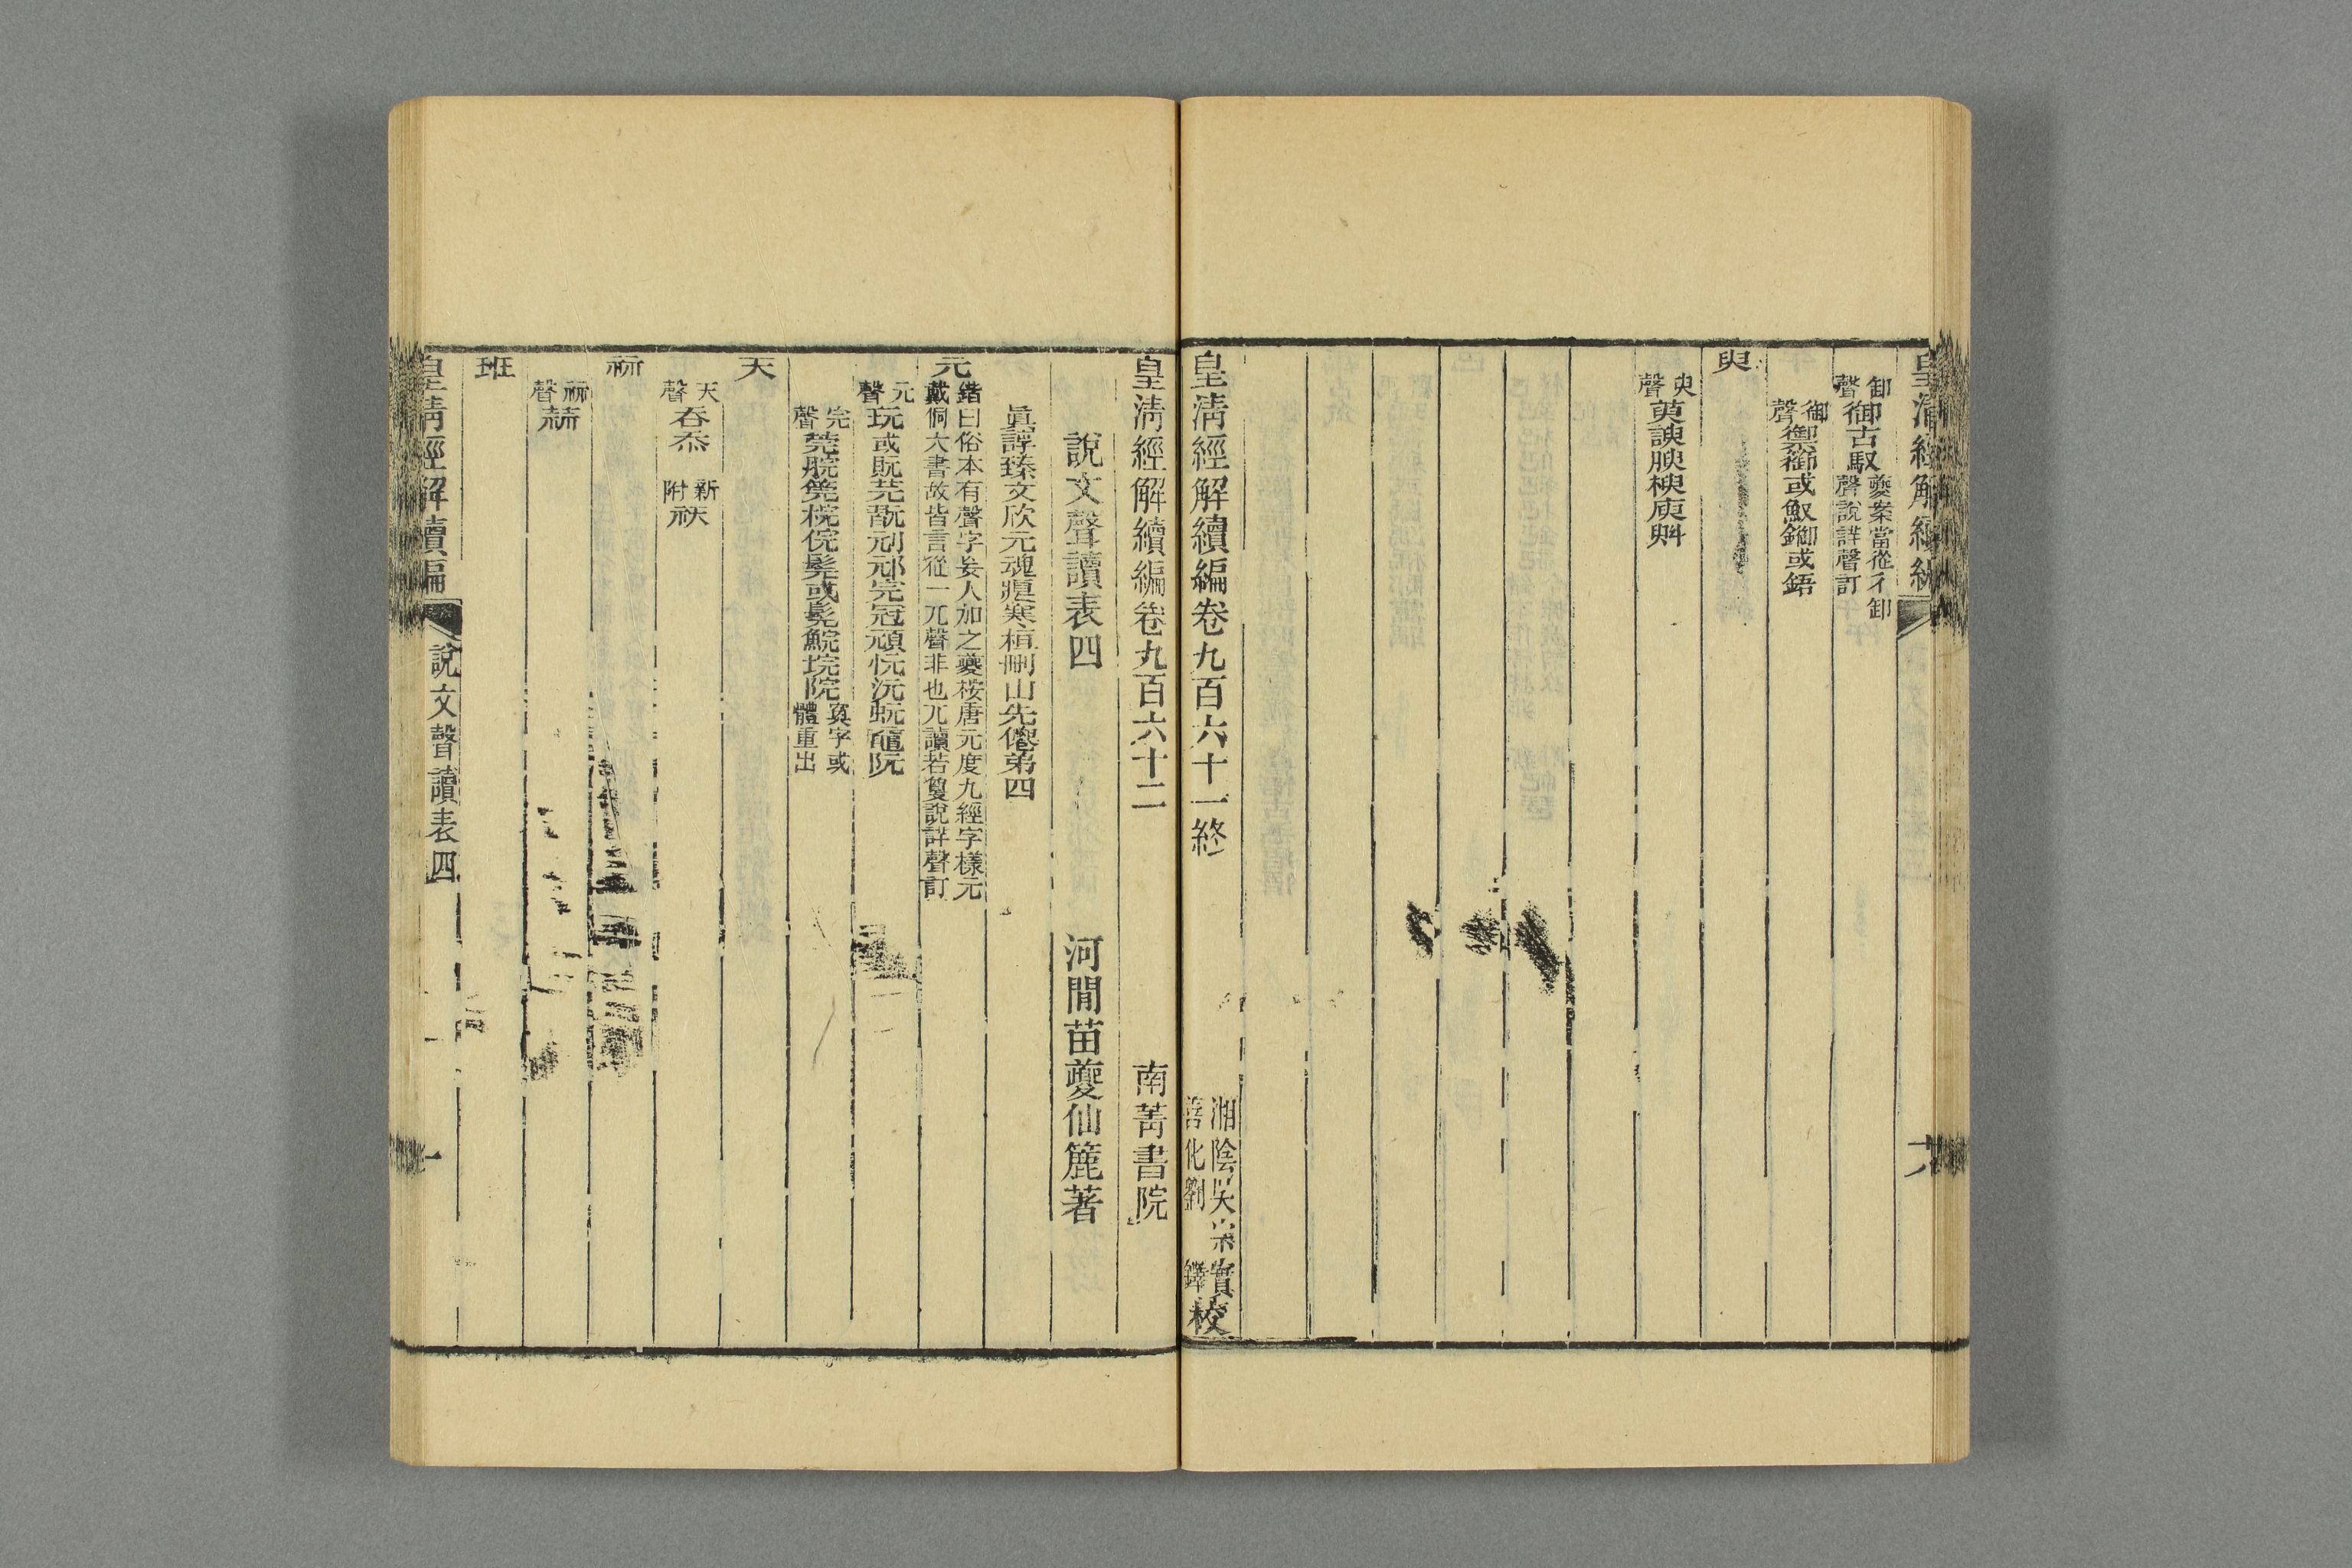 皇淸經解續編
卸聲御古馭夔案當從彳卸聲說詳聲訂
御聲禦篽或𩵎鋙或鋙
臾
臾聲萸諛腴楰庾斞
皇淸經解續編卷九百六十一終
湘陰吳宗實
善化劉鐸校
皇淸經解續編卷九百六十二
南菁書院
說文聲讀表四
河閒苗夔仙簏著
眞諄臻文欣元魂痕寒桓刪山先僊弟四
元
鍇曰俗本有聲字妄人加之夔桉唐元度九經字樣元
戴侗六書故皆言從一兀聲非也兀讀若敻說詳聲訂
元聲玩或貦芫翫刓邧完冠頑忨沅蚖黿阮
完聲莞脘筦梡俒髡或髨鯇垸院寏字或體重出
天
天聲吞忝
新附祆
祘
祘聲蒜
班
皇淸經解續編
說文聲讀表四
一